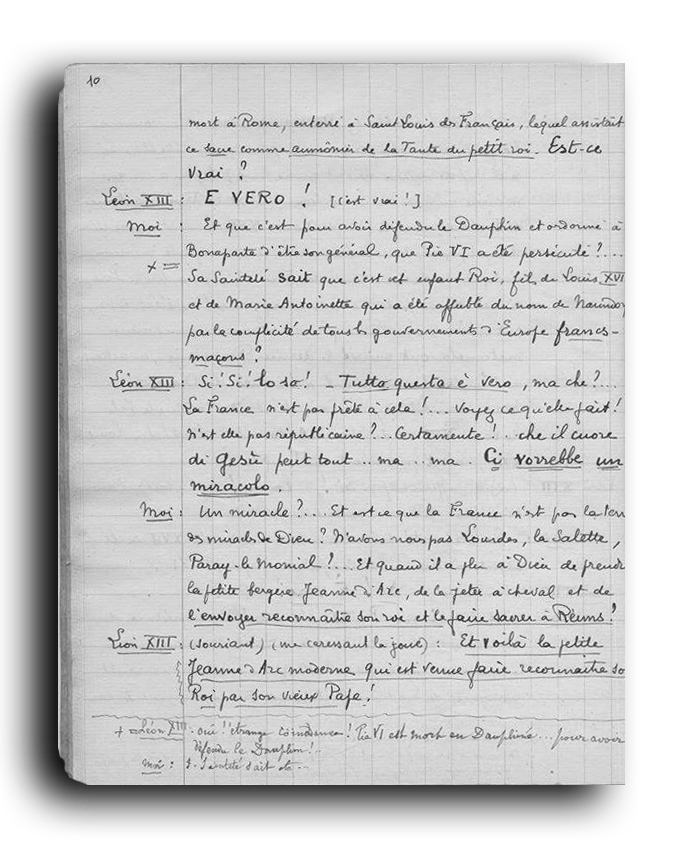 10
mort à Rome, enterré à Saint Louis des Français, lequel assistait
ce sacre comme aumônier de la Tante du petit roi. Est-ce
vrai ?
Léon XIII : E VERO ! [c'est vrai !]
Moi : Et que c'est pour avoir défendu le Dauphin et ordonné à
Bonaparte d'être son général, que Pie VI a été persécuté ?...
x = Sa Sainteté sait que c'est cet enfant Roi, fils de Louis XVI
et de Marie Antoinette qui a été affublé du nom de Naundor
par la complicité de tous les gouvernements d'Europe francs-
maçons ?
Léon XIII : Si ! Si ! lo so ! - Tutto questa è vero, ma che ?...
La France n'est pas prête à cela !... Voyez ce qu'elle fait !
N'est elle pas républicaine ?.. Certamente ! .. che il cuore
di Gesù peut tout .. ma .. ma . Ci vorrebbe un
miracolo.
Moi : Un miracle ?... Et est ce que la France n'est pas la terr
des miracles de Dieu ? N'avons nous pas Lourdes, la Salette,
Paray-le Monial ?... Et quand il a plu à Dieu de prendr
la petite bergère Jeanne d'Arc, de la jeter à cheval et de
l'envoyer reconnaître son roi et le faire sacrer à Reims !
Léon XIII : (souriant) (me caressant la joue) : Et voilà la petite
Jeanne d'Arc moderne qui est venue faire reconnaître so
Roi par son vieux Pape !
+ = Léon XIII - oui ! étrange coïncidence ! Pie VI est mort en Dauphiné... pour avoir
défendu le Dauphin !..
Moi : S. Sainteté sait etc...